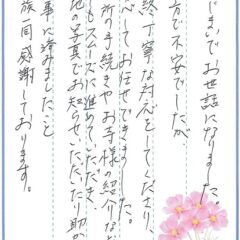 じまいでお世話になりました。
方で不安でしたが、
終丁寧な対応をしてくださり、
心してお任せできました。
所の手続きやお寺様の紹介など
もスムーズに進めていただき、
地の写真でお知らせいただいたり助か
事に済みましたこと
族一同感謝しております。